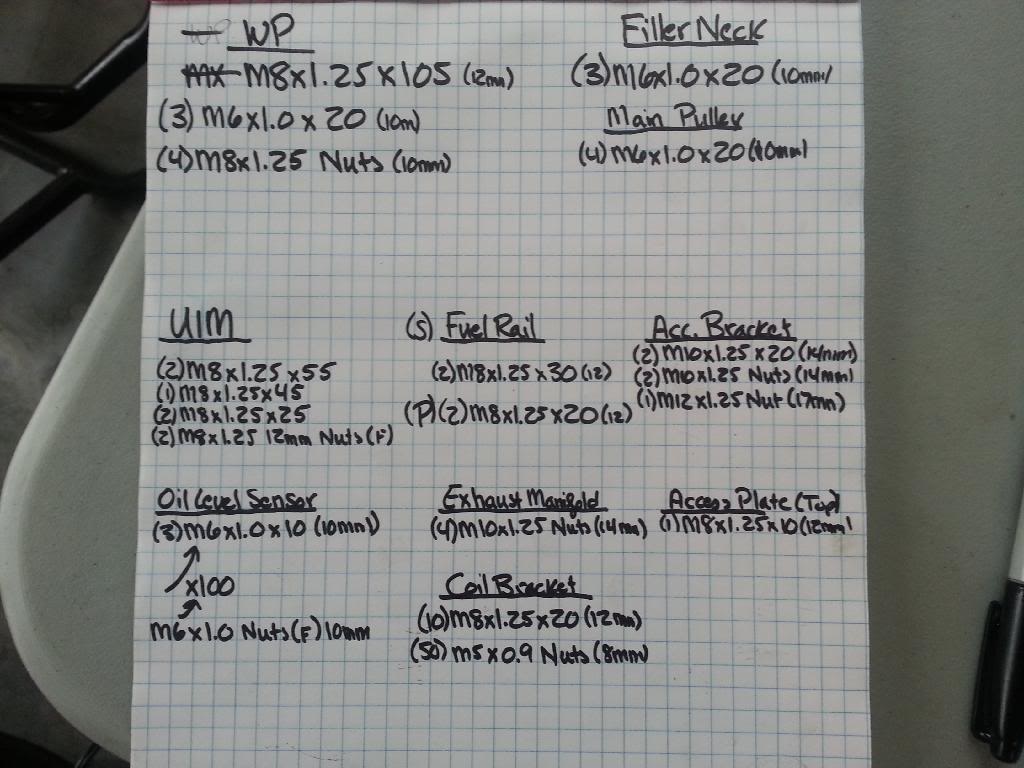 WP
M8x1.25x105 (12mm)
(3) M6x1.0 x 20 (10m)
(4) M8x1.25 Nuts (10mm)
Filler Neck
(3) M6x1.0x20 (10mm)
Main Pulley
(4) M6x1.0x20 (10mm)
UIM
(2) M8x1.25x55
(1) M8x1.25x45
(2) M8x1.25x25
(2) M8x1.25 12mm Nuts (F)
(S) Fuel Rail
(2) M8x1.25x30 (12)
(P) (2) M8x1.25x20 (12)
Acc. Bracket
(2) M10x1.25 x 20 (14mm)
(2) M10x1.25 Nuts (14mm)
(1) M12x1.25 Nut (17mm)
Oil Level Sensor
(3) M6x1.0x10 (10mm)
x100
M6x1.0 Nuts (F) 10mm
Exhaust Manifold
(4) M10x1.25 Nuts (14mm)
Access Plate (Top)
(1) M8x1.25x10 (12mm)
Coil Bracket
(10) M8x1.25x20 (12mm)
(50) M5x0.9 Nuts (8mm)